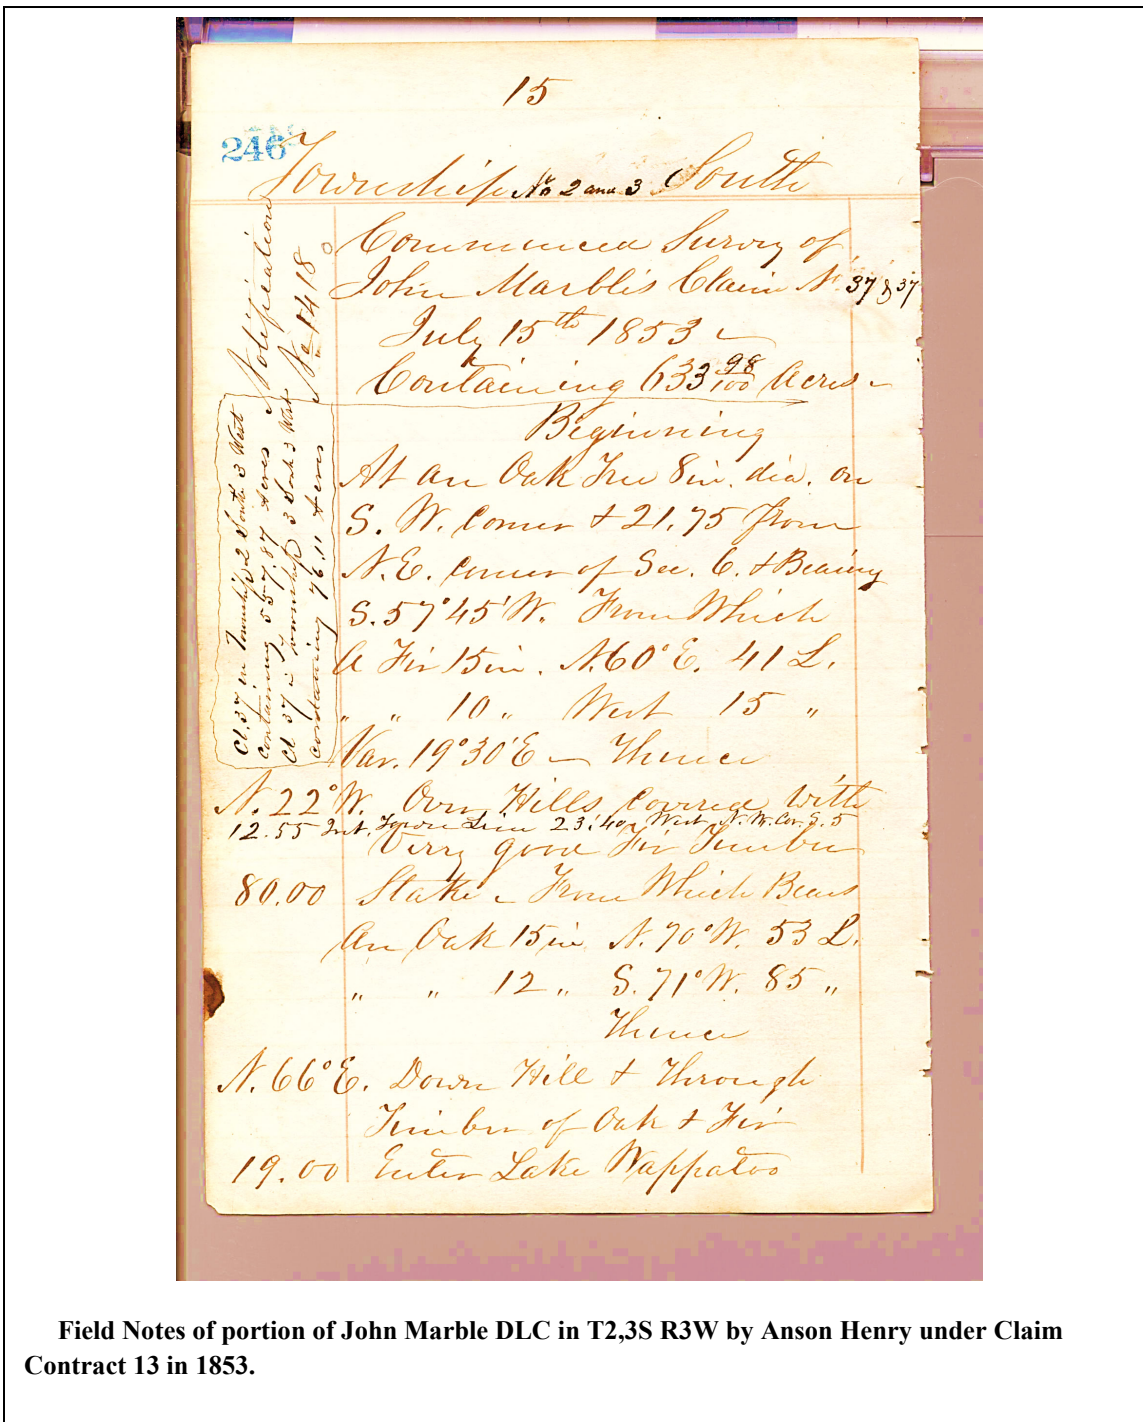 15
246
Township No 2 and 3 South
Notification
No 1418
Cl. 37 in Township 2 South 3 West
Containing 557.87 Acres
Cl 37 in Township 3 South 3 West
Containing 76.11 Acres
Commenced Survey of
John Marble's Claim No 37 & 37
July 15th 1853
Containing 633 98/100 Acres
Beginning
At an Oak Tree 8 in. dia. on
S. W. Corner & 21.75 from
N.E. Corner of Sec. 6. & Bearing
S. 57° 45' W. From Which
A Fir 15 in. N. 60° E. 41 L.
" " 10 " West 15 "
Var. 19° 30' E — Thence
N. 22° W. Over Hills Covered With
12.55 Int. Town Line 23.40 West N.W. Cor. S. 5
Verry good Fir Timber
80.00 Stake - From Which Bears
An Oak 15 in N. 70° W. 53 L.
" " 12 " S. 71° W. 85 "
Thence
N. 66° E. Down Hill & Through
Timber of Oak & Fir
19.00 Enter Lake Wappatoo
Field Notes of portion of John Marble DLC in T2,3S R3W by Anson Henry under Claim
Contract 13 in 1853.